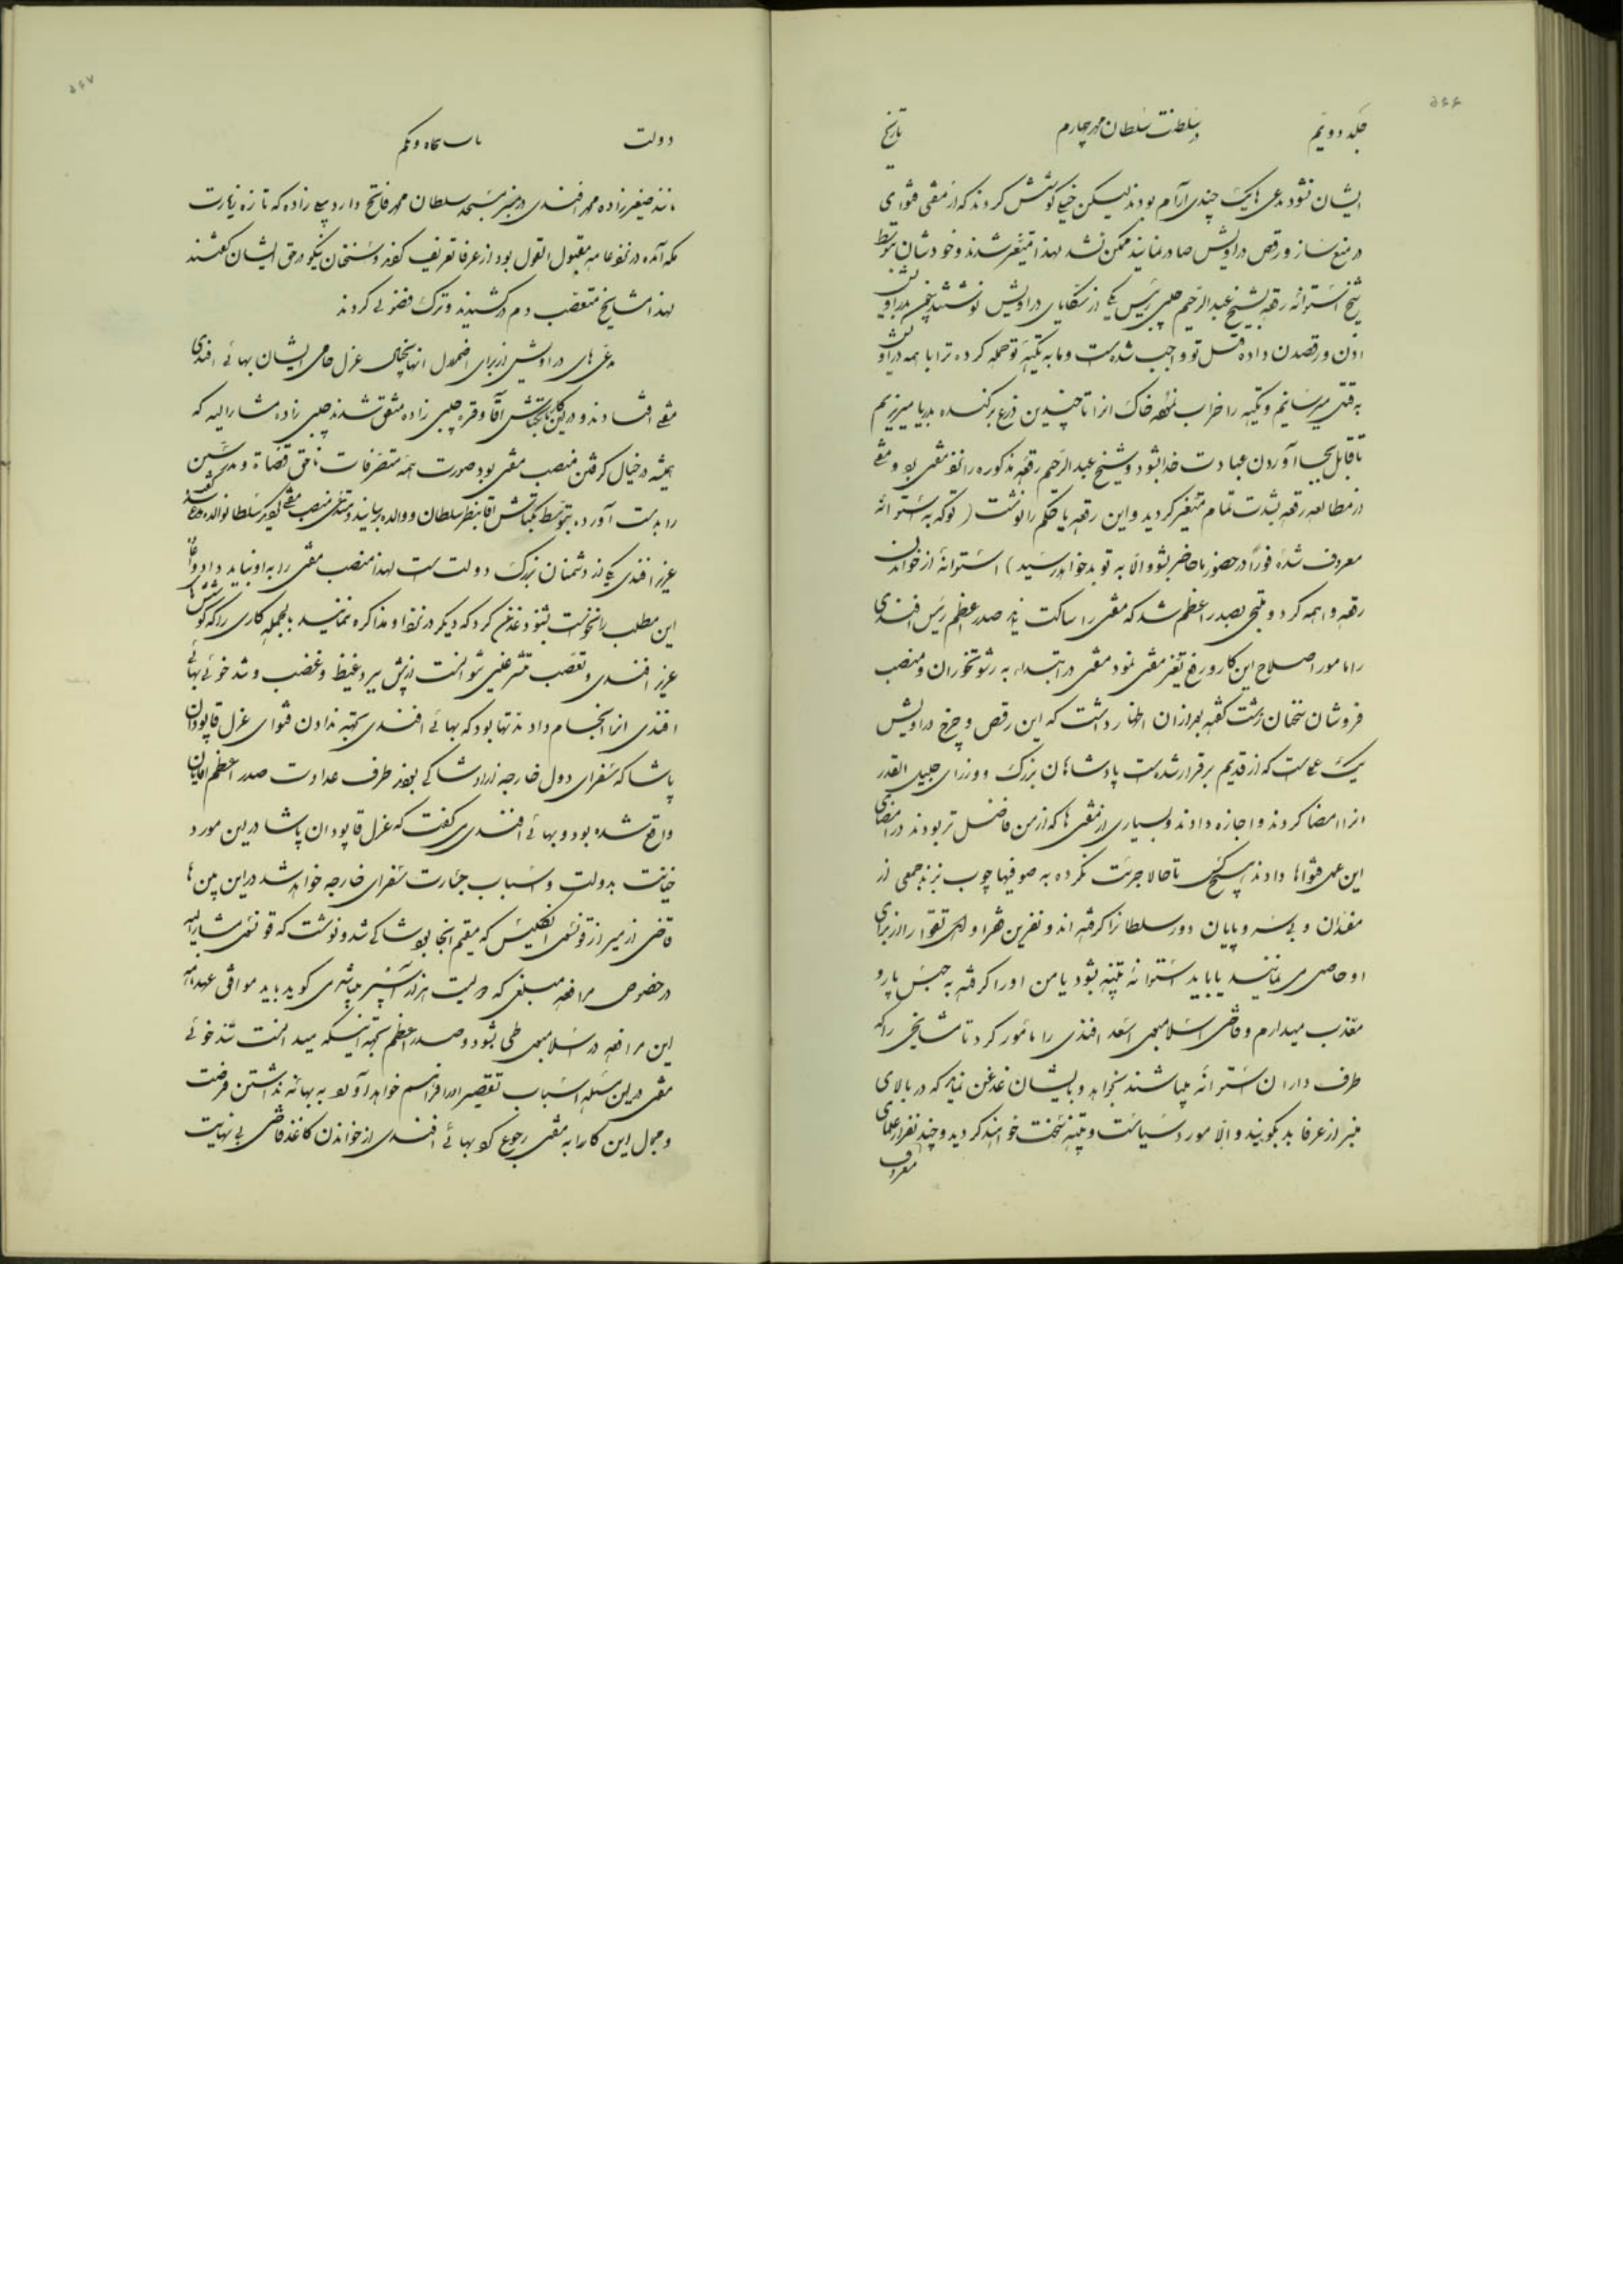 ۵۶۶
جلد دویم
در سلطنت سلطان محمد چهارم
تاریخ
ایشان نشود مدعی ها یک چندی آرام بودند لیکن خیلی کوشش کردند که از مفتی فتوای
در منع ساز و رقص دراویش صادر نمایند ممکن نشد لهذا متغیر شدند و خودشان بتوسط
شیخ استوانه رقعه بشیخ عبدالرحیم چلبی رئیس یکی از تکایای دراویش نوشتند
اذن ورقصدن داده قتل تو واجب شده است و ما به تکیه تو حمله کرده ترا با همه دراویش
به قتل میرسانیم و تکیه را خراب نموده خاک آنرا تا چندین ذرع بر کنده بدریا میریزیم
تا قابل بجا آوردن عبادت خدا بشود و شیخ عبدالرحیم رقعه مذکوره را نزد مفتی برد و مفتی
از مطالعه رقعه بشدت تمام متغیر گردید و این رقعه یا حکم را نوشت (توکه به استوانه
معروف شده فوراً در حضور ما حاضر بشو والا به تو بد خواهد رسید) استوانه از خواندن
رقعه واهمه کرد و ملتجی بصدر اعظم شد که مفتی را ساکت نماید صدر اعظم رئیس افندی
را مامور اصلاح این کار و رفع تغیر مفتی نمود مفتی در ابتدا به رشوتخوران و منصب
فروشان سخنان زشت گفته بعد از آن اظهار داشت که این رقص و چرخ دراویش
یک عملست که از قدیم برقرار شده است پادشاهان بزرگ و وزرای جلیل القدر
آنرا امضا کردند و اجازه دادند و بسیاری از مفتی ها که از من فاضل تر بودند در امضای
این عمل فتواها دادند هیچکس تا حالا جرئت نکرده به صوفیها چوب بزند جمعی از
مفسدان و بی سر و پایان دور سلطان را گرفته اند و نفرین شهر و اهل تقوا را از برای
او حاصل می نمایند یا باید استوانه تنبیه بشود یا من او را گرفته به حبس پارو
معذب میدارم و قاضی اسلامبول اسعد افندی را مامور کرد تا مشایخی را که
طرف داران استوانه میباشند بخواهد و بایشان غدغن نماید که در بالای
منبر از عرفا بد نگویند والا مورد سیاست و تنبیه سخت خواهند گردید و چند نفر از علمای
معروف
۵۶۷
دولت
باب پنجاه ویکم
مانند صغیرزاده محمد افندی در منبر مسجد سلطان محمد فاتح و زاده که تازه زیارت
مکه آمده در نزد عامه مقبول القول بود از عرفا تعریف کرده و سخنان نیکو در حق ایشان گفتند
لهذا مشایخ متعصب دم در کشیدند و ترک فضولی کردند
مدعی های دراویش از برای اضمحلال آنها بخیال عزل حامی ایشان بهائی افندی
مفتی افتادند و در این کار بکتاش آقا و قره چلبی زاده متفق شدند چلبی زاده مشارالیه که
همیشه در خیال گرفتن منصب مفتی بود صورت همه تصرفات ناحق قضاة و مدرسین
را بدست آورده بتوسط بکتاش آقا بنظر سلطان و والده رسانید و متمنی منصب مفتی گردید
عزیز افندی یکی از دشمنان بزرگ دولت است لهذا منصب مفتی را به او نباید داد و
این مطلب را نخواست بشنود غدغن کرد که دیگر در نزد او مذاکره ننمایند بالجمله کاری را که کوشش های
عزیز افندی و تعصب متشرعین نتوانست از پیش ببرد غیظ و غضب و تند خوئی بهائی
افندی آنرا انجام داد مدتها بود که بهائی افندی بجهة ندادن فتوای عزل قاپودان
پاشا که سفرای دول خارجه از او شاکی بودند طرف عداوت صدر اعظم
واقع شده بود و بهائی افندی می گفت که عزل قاپودان پاشا در این مورد
خیانت بدولت و اسباب جسارت سفرای خارجه خواهد شد در این بین ها
قاضی ازمیر از قونسول انگلیس که مقیم آنجا بود شاکی شد و نوشت که قونسول مشارالیه
در خصوص مرافعه مبلغی که دویست هزار آسپر میباشد می گوید باید موافق عهدنامه
این مرافعه در اسلامبول طی بشود و صدر اعظم بجهة اینکه میدانست تند خوئی
مفتی در این مسئله اسباب تقصیر او را فراهم خواهد آورد به بهانه نداشتن فرصت
و مجال این کار را به مفتی رجوع کرد بهائی افندی از خواندن کاغذ قاضی بی نهایت